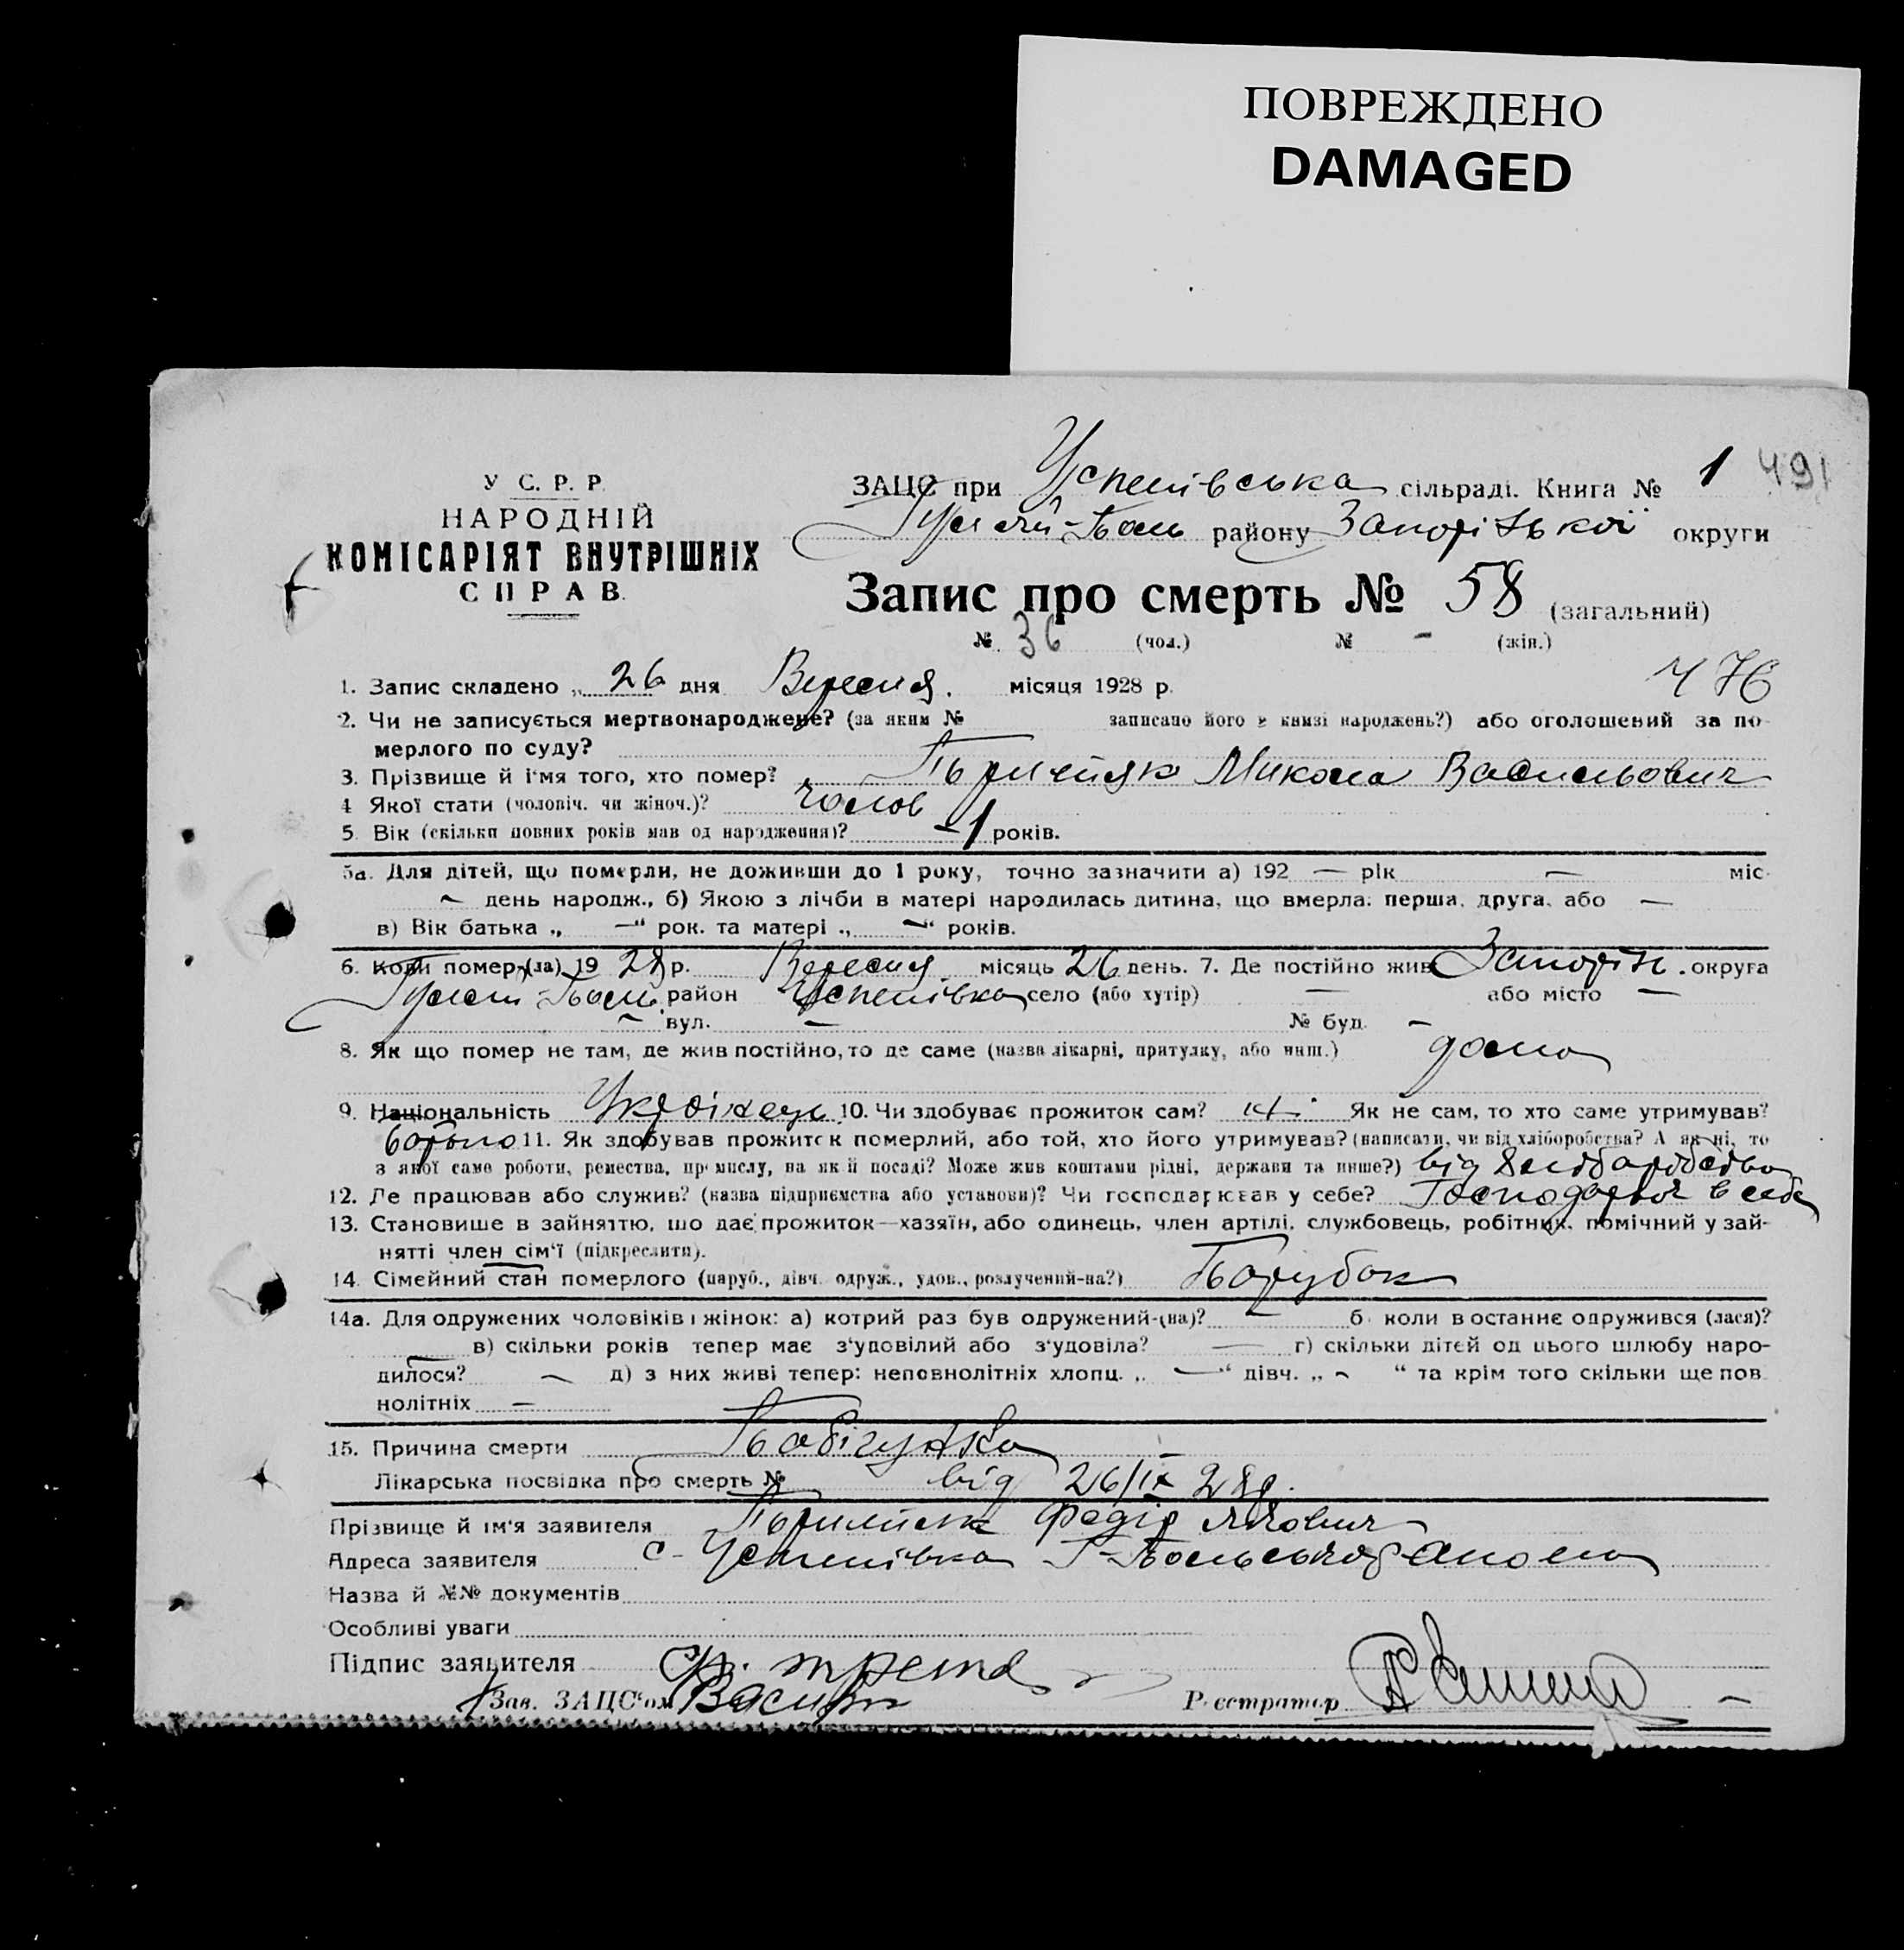 ПОВРЕЖДЕНО
DAMAGED
У С. Р. Р.
НАРОДНІЙ
КОМІСАРІЯТ ВНУТРІШНІХ
СПРАВ.
ЗАЦС при Успенівська сільраді. Книга № 1 491
району Запорізької округи
Запис про смерть № 58 (загальний)
№ 36 (чол.) № - (жін.)
476
1. Запис складено „ 26 дня Вересня. місяця 1928 р.
2. Чи не записується мертвонароджене? (за яким № записано його в книзі народжень?) або оголошений за по-
мерлого по суду?
3. Прізвище й ім'я того, хто помер? Микола Васильович
4 Якої стати (чоловіч. чи жіноч.)? чолов
5. Вік (скільки повних років мав од народження)? – 1 років.
5а. Для дітей, що померли, не доживши до 1 року, точно зазначити а) 192 — рік — міс.
— день народж., б) Якою з лічби в матері народилась дитина, що вмерла: перша, друга, або —
в) Вік батька „ —“ рок. та матері „ —“ років.
6. Коли помер(ла) 19 28 р. Вересня місяць 26 день. 7. Де постійно жив Запоріз. округа
район Успенівка село (або хутір) — або місто —
— вул. — № буд. —
8. Як що помер не там, де жив постійно, то де саме (назва лікарні, притулку, або инш.) дома
9. Національність Українець 10. Чи здобуває прожиток сам? ні. Як не сам, то хто саме утримував?
батько 11. Як здобував прожиток померлий, або той, хто його утримував? (написати, чи від хліборобства? А як ні, то
з якої саме роботи, ремества, промислу, на якій посаді? Може жив коштами рідні, держави та инше?) від
12. Де працював або служив? (назва підприємства або установи)? Чи господарював у себе? в себе
13. Становище в зайняттю, що дає прожиток—хазяїн, або одинець, член артілі, службовець, робітник, помічний у зай-
нятті член сім'ї (підкреслити).
14. Сімейний стан померлого (паруб., дівч. одруж., удов., розлучений-на?) Парубок
14а. Для одружених чоловіків і жінок: а) котрий раз був одружений-(на)? — б) коли в останнє одружився (лася)?
— в) скільки років тепер має з'удовілий або з'удовіла? — г) скільки дітей од цього шлюбу наро-
дилося? — д) з них живі тепер: неповнолітніх хлопц. „ —“ дівч. „ — “ та крім того скільки ще пов-
нолітніх —
15. Причина смерти
Лікарська посвідка про смерть № від 26/IX 28р.
Прізвище й ім'я заявителя Федір
Адреса заявителя с. Успенівка
Назва й №№ документів
Особливі уваги
Підпис заявителя
Зав. ЗАЦС'ом Реєстратор